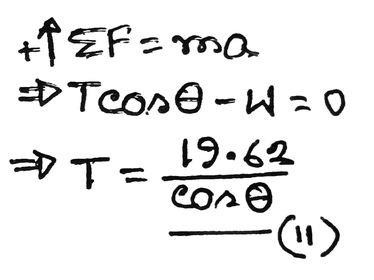 +↑ ΣF = ma
⇒ Tcosθ - W = 0
⇒ T = 19.62 / cosθ
(11)